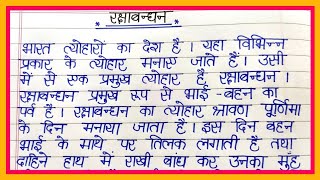 * रक्षाबन्धन *
भारत त्योहारों का देश है। यहा विभिन्न
प्रकार के त्योहार मनाए जाते हैं। उसी
में से एक प्रमुख त्योहार है, रक्षाबन्धन।
रक्षाबन्धन प्रमुख रूप से भाई -बहन का
पर्व है। रक्षाबन्धन का त्योहार श्रावण पूर्णिमा
के दिन मनाया जाता है। इस दिन बहन
भाई के माथे पर तिलक लगाती है तथा
दाहिने हाथ में राखी बांध कर उनका मुंह